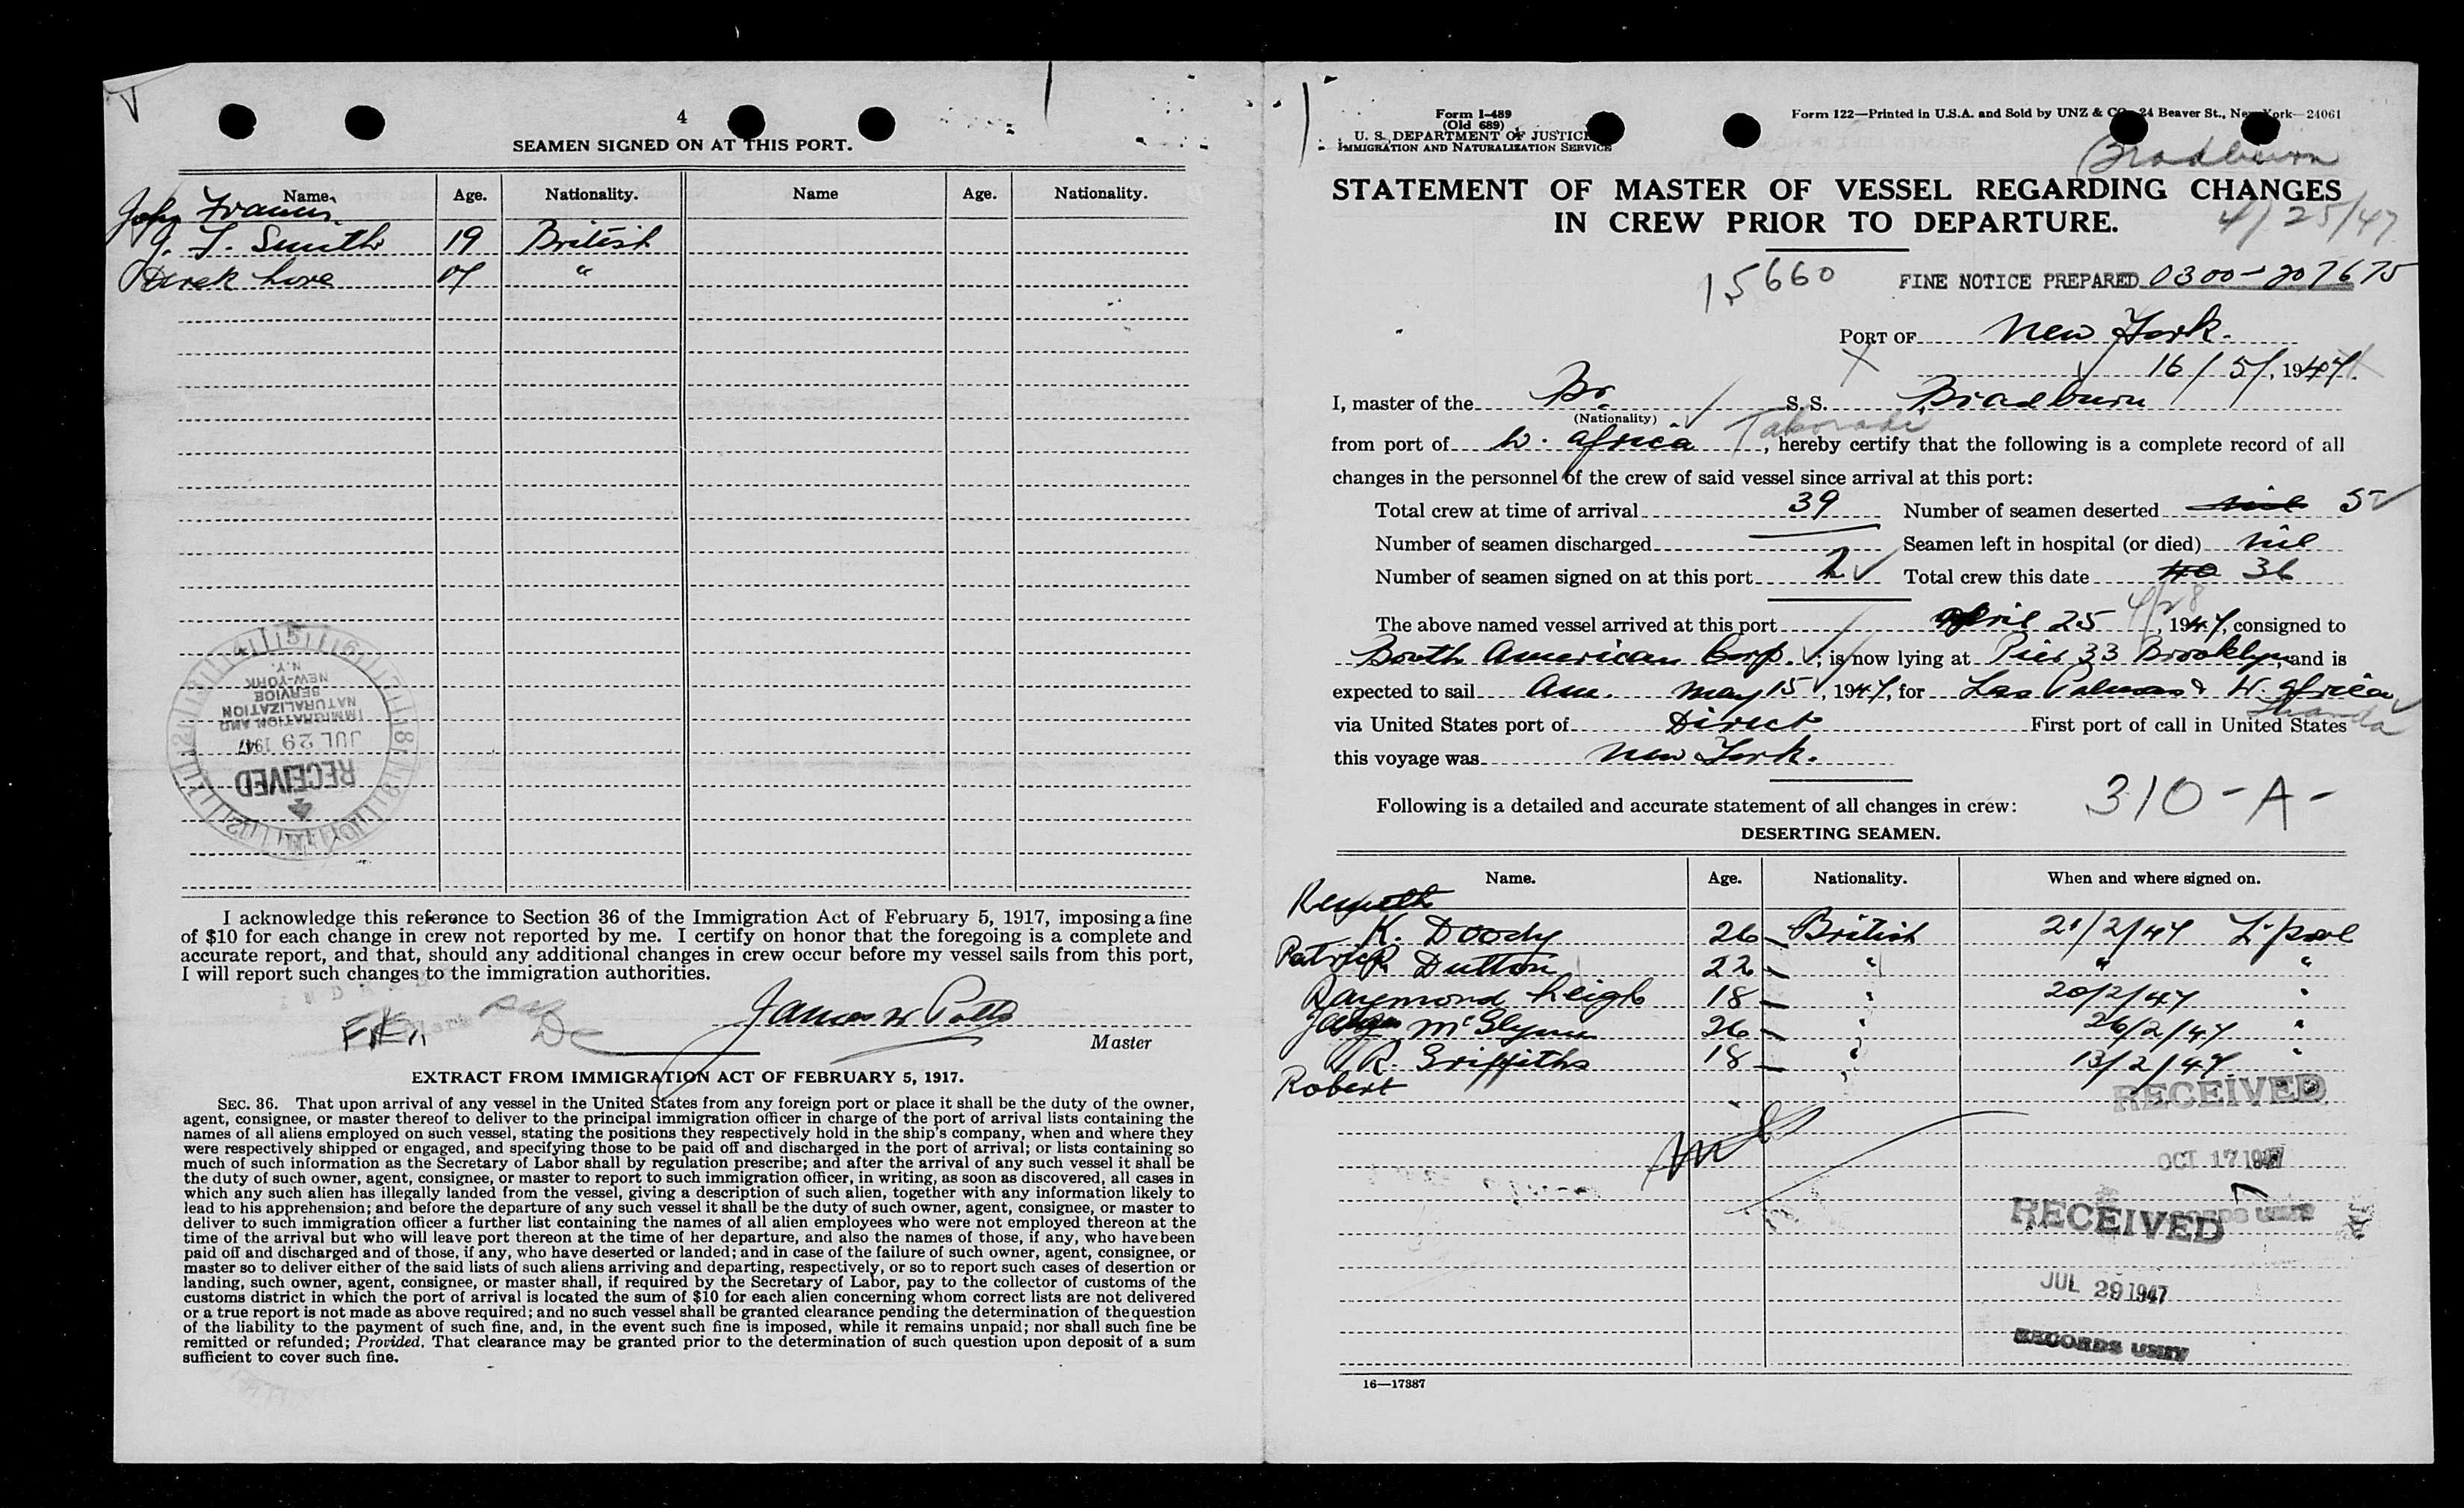 4
SEAMEN SIGNED ON AT THIS PORT.
Name. Age. Nationality. Name Age. Nationality.
John Francis
J. F. Smith 19 British
Derek Love "
RECEIVED
JUL 29 1947
IMMIGRATION AND
NATURALIZATION
SERVICE
NEW-YORK
N.Y.
I acknowledge this reference to Section 36 of the Immigration Act of February 5, 1917, imposing a fine
of $10 for each change in crew not reported by me. I certify on honor that the foregoing is a complete and
accurate report, and that, should any additional changes in crew occur before my vessel sails from this port,
I will report such changes to the immigration authorities.
James W Potts
Master
EXTRACT FROM IMMIGRATION ACT OF FEBRUARY 5, 1917.
SEC. 36. That upon arrival of any vessel in the United States from any foreign port or place it shall be the duty of the owner,
agent, consignee, or master thereof to deliver to the principal immigration officer in charge of the port of arrival lists containing the
names of all aliens employed on such vessel, stating the positions they respectively hold in the ship's company, when and where they
were respectively shipped or engaged, and specifying those to be paid off and discharged in the port of arrival; or lists containing so
much of such information as the Secretary of Labor shall by regulation prescribe; and after the arrival of any such vessel it shall be
the duty of such owner, agent, consignee, or master to report to such immigration officer, in writing, as soon as discovered, all cases in
which any such alien has illegally landed from the vessel, giving a description of such alien, together with any information likely to
lead to his apprehension; and before the departure of any such vessel it shall be the duty of such owner, agent, consignee, or master to
deliver to such immigration officer a further list containing the names of all alien employees who were not employed thereon at the
time of the arrival but who will leave port thereon at the time of her departure, and also the names of those, if any, who have been
paid off and discharged and of those, if any, who have deserted or landed; and in case of the failure of such owner, agent, consignee, or
master so to deliver either of the said lists of such aliens arriving and departing, respectively, or so to report such cases of desertion or
landing, such owner, agent, consignee, or master shall, if required by the Secretary of Labor, pay to the collector of customs of the
customs district in which the port of arrival is located the sum of $10 for each alien concerning whom correct lists are not delivered
or a true report is not made as above required; and no such vessel shall be granted clearance pending the determination of the question
of the liability to the payment of such fine, and, in the event such fine is imposed, while it remains unpaid; nor shall such fine be
remitted or refunded; Provided, That clearance may be granted prior to the determination of such question upon deposit of a sum
sufficient to cover such fine.
Form I-489
(Old 689)
U. S. DEPARTMENT OF JUSTICE
IMMIGRATION AND NATURALIZATION SERVICE
Form 122—Printed in U.S.A. and Sold by UNZ & CO. 24 Beaver St., New York—24061
Bradburn
STATEMENT OF MASTER OF VESSEL REGARDING CHANGES
IN CREW PRIOR TO DEPARTURE.
4/25/47
15660 FINE NOTICE PREPARED 0300-207675
PORT OF New York.
16/5/, 1947.
I, master of the Br. S. S. Bradburn
(Nationality)
Takoradi
from port of W. Africa, hereby certify that the following is a complete record of all
changes in the personnel of the crew of said vessel since arrival at this port:
Total crew at time of arrival 39 Number of seamen deserted nil 5
Number of seamen discharged Seamen left in hospital (or died) nil
Number of seamen signed on at this port 2 Total crew this date 40 36
4/28
The above named vessel arrived at this port April 25, 1947, consigned to
South American Corp.; is now lying at Pier 33 Brooklyn, and is
expected to sail Am. May 15, 1947, for Las Palmas & W. Africa
via United States port of Direct First port of call in United States
this voyage was New York.
310-A-
Following is a detailed and accurate statement of all changes in crew:
DESERTING SEAMEN.
Name. Age. Nationality. When and where signed on.
Kenneth
K. Doody 26 British 21/2/47 L'pool
Patrick Dutton 22 " " "
Raymond Leigh 18 " 20/2/47 "
James McGlynn 26 " 26/2/47 "
R. Griffiths 18 " 13/2/47 "
Robert
RECEIVED
OCT 17 1947
RECORDS UNIT
RECEIVED
JUL 29 1947
RECORDS UNIT
16—17387